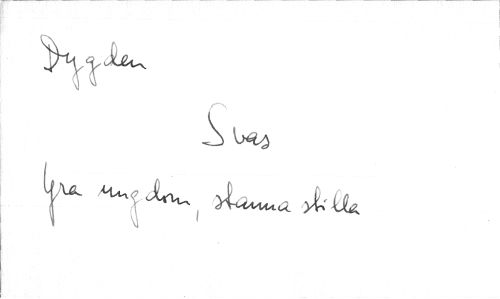 Dygden
Svas
Yra ungdom, stanna stilla